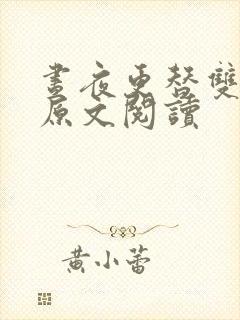 晝夜更替雙
原文閱讀
黃小蕾